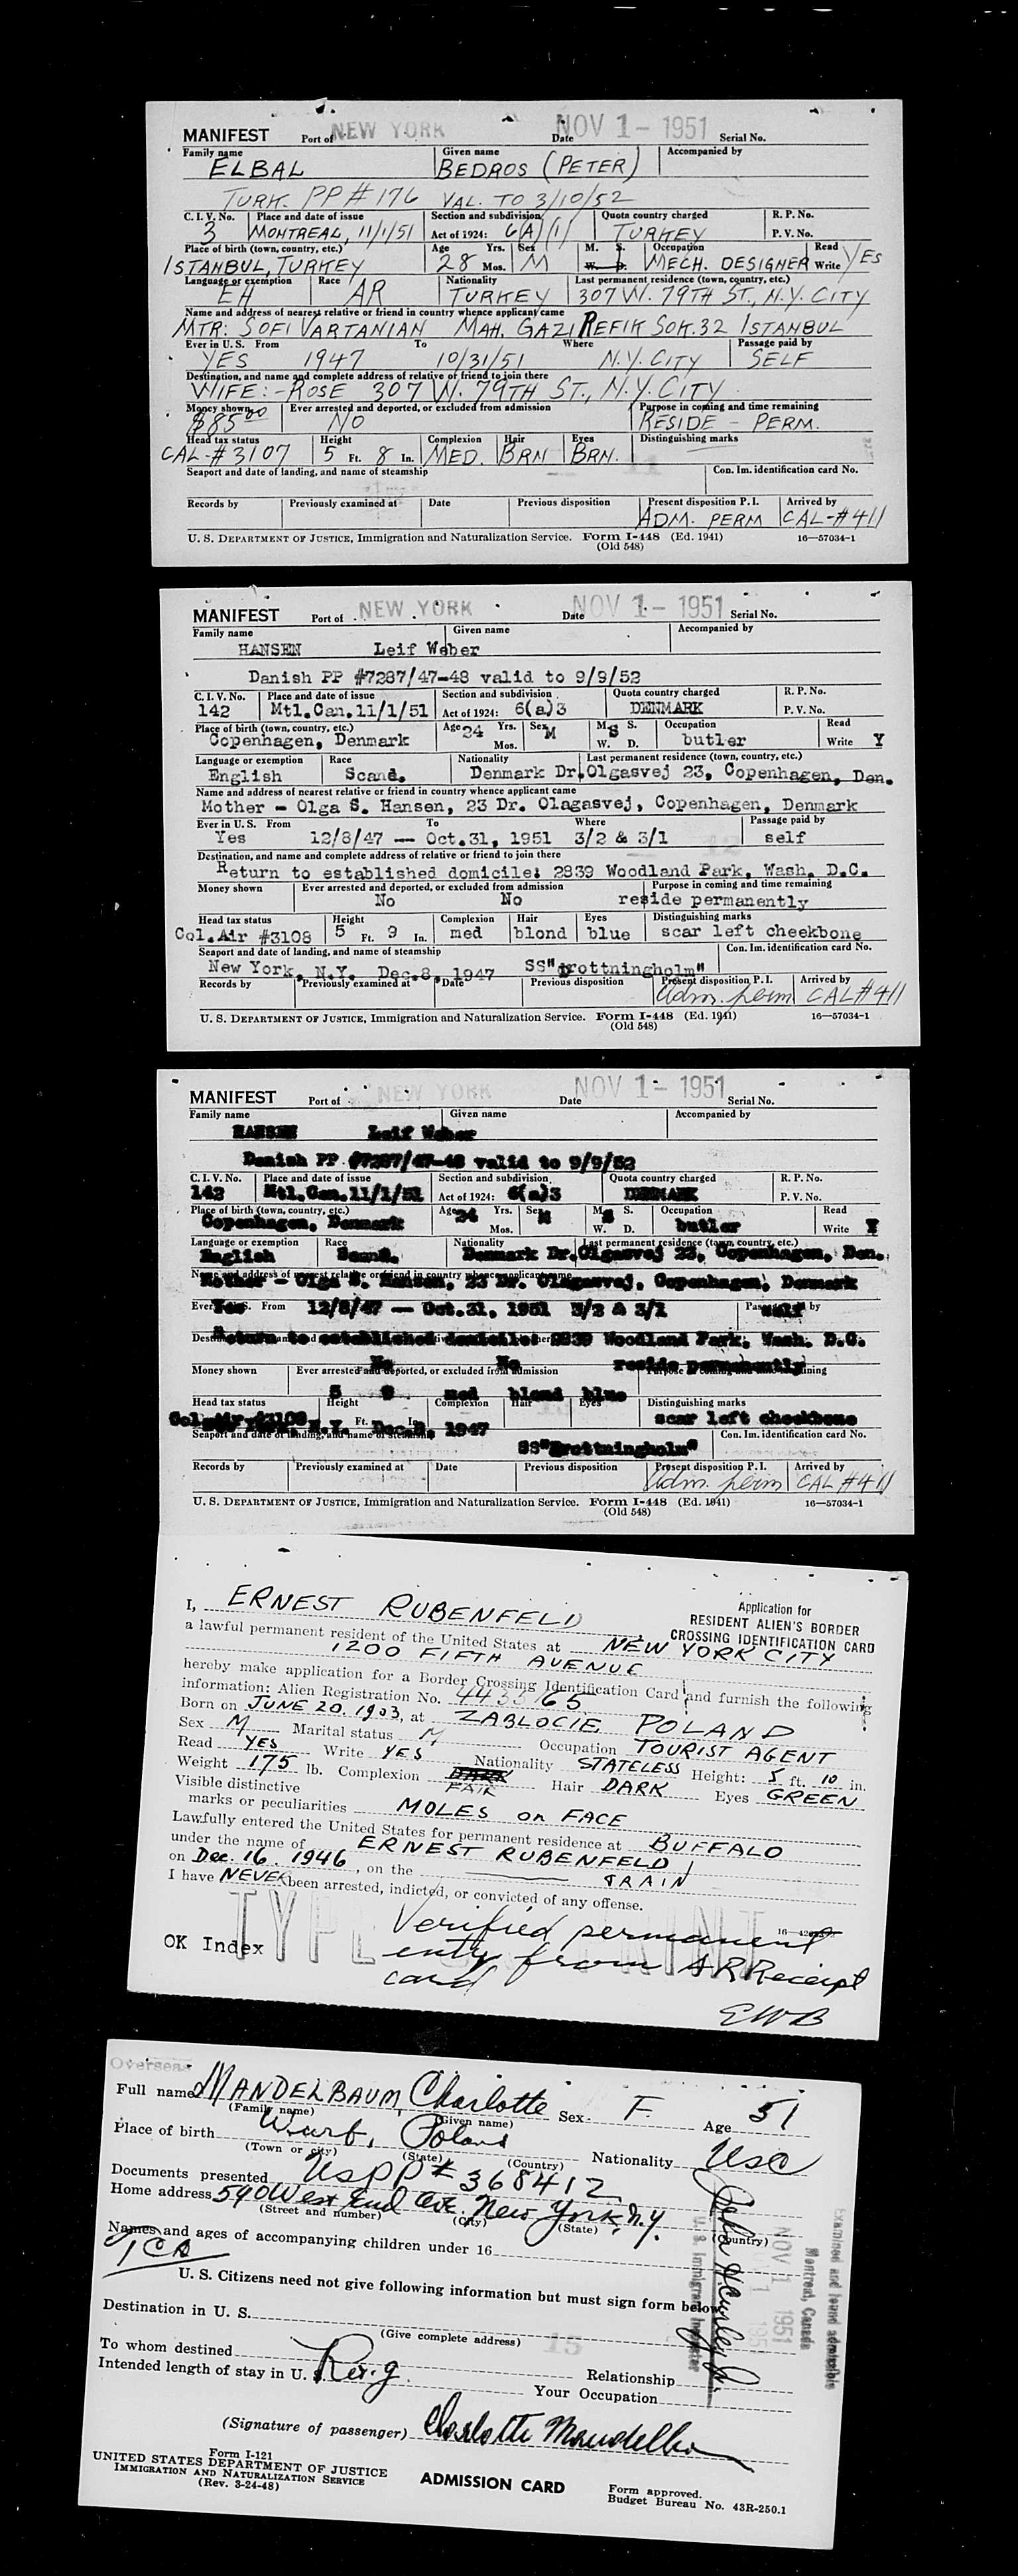 MANIFEST Port of NEW YORK Date NOV 1 - 1951 Serial No.
Family name Given name Accompanied by
ELBAL BEDROS (PETER)
TURK. PP # 176 VAL. TO 3/10/52
C. I. V. No. Place and date of issue Section and subdivision Quota country charged R. P. No.
3 MONTREAL, 11/1/51 Act of 1924: 6(A)(1) TURKEY P. V. No.
Place of birth (town, country, etc.) Age Yrs. Sex M. S. Occupation Read
ISTANBUL, TURKEY 28 Mos. M W. D. MECH. DESIGNER Write YES
Language or exemption Race Nationality Last permanent residence (town, country, etc.)
EH AR TURKEY 307 W. 79TH ST., N.Y. CITY
Name and address of nearest relative or friend in country whence applicant came
MTR: SOFI VARTANIAN MAH. GAZI REFIK SOK. 32 ISTANBUL
Ever in U. S. From To Where Passage paid by
YES 1947 10/31/51 N.Y. CITY SELF
Destination, and name and complete address of relative or friend to join there
WIFE:- ROSE 307 W. 79TH ST., N.Y. CITY
Money shown Ever arrested and deported, or excluded from admission Purpose in coming and time remaining
$85.00 NO RESIDE - PERM.
Head tax status Height Complexion Hair Eyes Distinguishing marks
CAL-#3107 5 Ft. 8 In. MED. BRN BRN.
Seaport and date of landing, and name of steamship Con. Im. identification card No.
11
Records by Previously examined at Date Previous disposition Present disposition P. I. Arrived by
ADM. PERM CAL-#411
U. S. DEPARTMENT OF JUSTICE, Immigration and Naturalization Service. Form I-448 (Ed. 1941) 16—57034-1
(Old 548)
MANIFEST Port of NEW YORK Date NOV 1 - 1951 Serial No.
Family name Given name Accompanied by
HANSEN Leif Weber
Danish PP #7287/47-48 valid to 9/9/52
C. I. V. No. Place and date of issue Section and subdivision Quota country charged R. P. No.
142 Mtl.Can.11/1/51 Act of 1924: 6(a)3 DENMARK P. V. No.
Place of birth (town, country, etc.) Age 24 Yrs. Sex M M. S. Occupation Read
Copenhagen, Denmark Mos. W. D. butler Write Y
Language or exemption Race Nationality Last permanent residence (town, country, etc.)
English Scand. Denmark Dr.Olgasvej 23, Copenhagen, Den.
Name and address of nearest relative or friend in country whence applicant came
Mother - Olga S. Hansen, 23 Dr. Olagasvej, Copenhagen, Denmark
Ever in U. S. From To Where Passage paid by
Yes 12/8/47 -- Oct.31, 1951 3/2 & 3/1 self
Destination, and name and complete address of relative or friend to join there
Return to established domicile: 2839 Woodland Park, Wash. D.C.
Money shown Ever arrested and deported, or excluded from admission Purpose in coming and time remaining
No No reside permanently
Head tax status Height Complexion Hair Eyes Distinguishing marks
Col.Air #3108 5 Ft. 9 In. med blond blue scar left cheekbone
Seaport and date of landing, and name of steamship Con. Im. identification card No.
New York, N.Y. Dec.8, 1947 SS"Drottningholm"
Records by Previously examined at Date Previous disposition Present disposition P. I. Arrived by
Adm. perm CAL #411
U. S. DEPARTMENT OF JUSTICE, Immigration and Naturalization Service. Form I-448 (Ed. 1941) 16—57034-1
(Old 548)
MANIFEST Port of NEW YORK Date NOV 1 - 1951 Serial No.
Family name Given name Accompanied by
HANSEN Leif Weber
Danish PP #7287/47-48 valid to 9/9/52
C. I. V. No. Place and date of issue Section and subdivision Quota country charged R. P. No.
142 Mtl.Can.11/1/51 Act of 1924: 6(a)3 DENMARK P. V. No.
Place of birth (town, country, etc.) Age 24 Yrs. Sex M M. S. Occupation Read
Copenhagen, Denmark Mos. W. D. butler Write Y
Language or exemption Race Nationality Last permanent residence (town, country, etc.)
English Scand. Denmark Dr.Olgasvej 23, Copenhagen, Den.
Name and address of nearest relative or friend in country whence applicant came
Mother - Olga S. Hansen, 23 Dr. Olagasvej, Copenhagen, Denmark
Ever in U. S. From Passage paid by
Yes 12/8/47 -- Oct.31, 1951 3/2 & 3/1 self
Return to established domicile: 2839 Woodland Park, Wash. D.C.
No No reside permanently
Money shown Ever arrested and deported, or excluded from admission Purpose in coming and time remaining
5 9 med blond blue
Head tax status Height Complexion Hair Eyes Distinguishing marks
Col.Air #3108 Ft. In. scar left cheekbone
New York, N.Y. Dec.8, 1947
Seaport and date of landing, and name of steamship SS"Drottningholm" Con. Im. identification card No.
Records by Previously examined at Date Previous disposition Present disposition P. I. Arrived by
Adm. perm CAL #411
U. S. DEPARTMENT OF JUSTICE, Immigration and Naturalization Service. Form I-448 (Ed. 1941) 16—57034-1
(Old 548)
Application for
RESIDENT ALIEN'S BORDER
CROSSING IDENTIFICATION CARD
I, ERNEST RUBENFELD
a lawful permanent resident of the United States at NEW YORK CITY
1200 FIFTH AVENUE
hereby make application for a Border Crossing Identification Card and furnish the following
information: Alien Registration No. 4435165
Born on JUNE 20, 1903, at ZABLOCIE, POLAND
Sex M Marital status M Occupation TOURIST AGENT
Read YES Write YES Nationality STATELESS Height: 5 ft. 10 in.
Weight 175 lb. Complexion DARK FAIR Hair DARK Eyes GREEN
Visible distinctive
marks or peculiarities MOLES on FACE
Lawfully entered the United States for permanent residence at BUFFALO
under the name of ERNEST RUBENFELD
on Dec. 16, 1946, on the TRAIN
I have NEVER been arrested, indicted, or convicted of any offense.
TYPE OR PRINT
OK Index
Verified permanent
entry from AR Receipt
card
EWB
Overseas
Full name MANDELBAUM, Charlotte Sex F. Age 51
(Family name) (Given name)
Place of birth Poland Nationality USC
(Town or city) (State) (Country)
Documents presented US PP # 368412
Home address 590 West End Ave. New York, N.Y.
(Street and number) (City) (State) (Country)
Names and ages of accompanying children under 16
TCA
U. S. Citizens need not give following information but must sign form below
Destination in U. S.
(Give complete address)
15
To whom destined Relationship
Intended length of stay in U. S. Your Occupation
(Signature of passenger) Charlotte Mandelbaum
Form I-121
UNITED STATES DEPARTMENT OF JUSTICE
IMMIGRATION AND NATURALIZATION SERVICE
(Rev. 3-24-48)
ADMISSION CARD
Form approved.
Budget Bureau No. 43R-250.1
Examined and found admissible
Montreal, Canada
NOV 1 1951
U. S. Immigrant Inspector